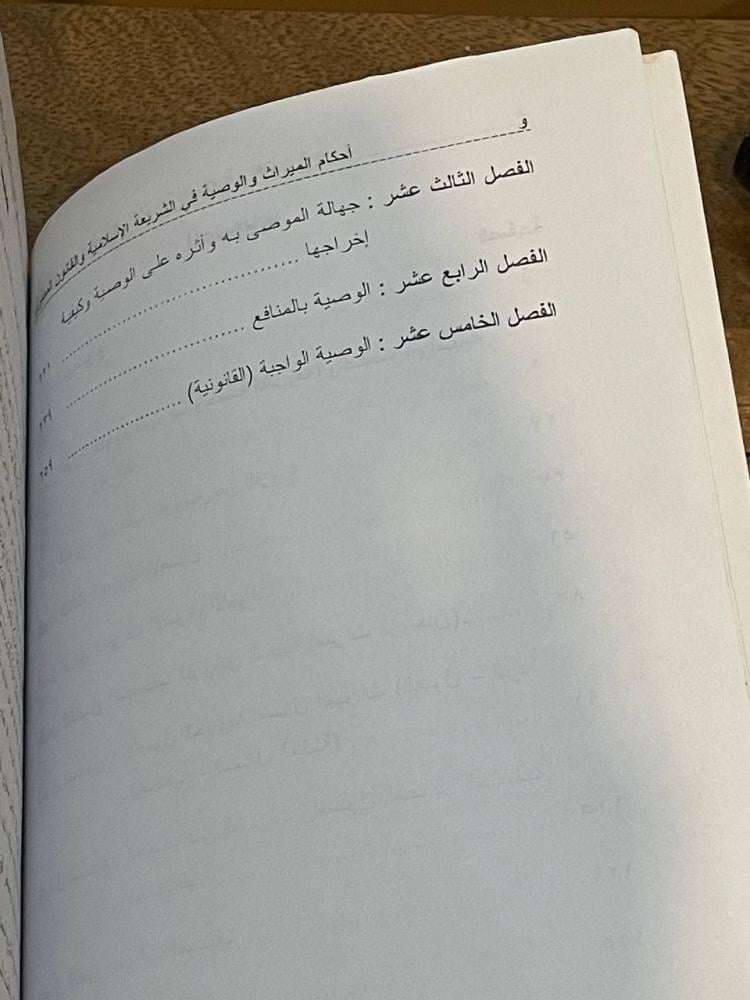 و
أحكام الميراث والوصية في الشريعة الإسلامية والقانون
الفصل الثالث عشر : جهالة الموصى به وأثره على الوصية وكيفية
إخراجها .......................................... ٢٢١
الفصل الرابع عشر : الوصية بالمنافع .......................................... ٢٣٩
الفصل الخامس عشر : الوصية الواجبة (القانونية) .......................................... ٢٥٩